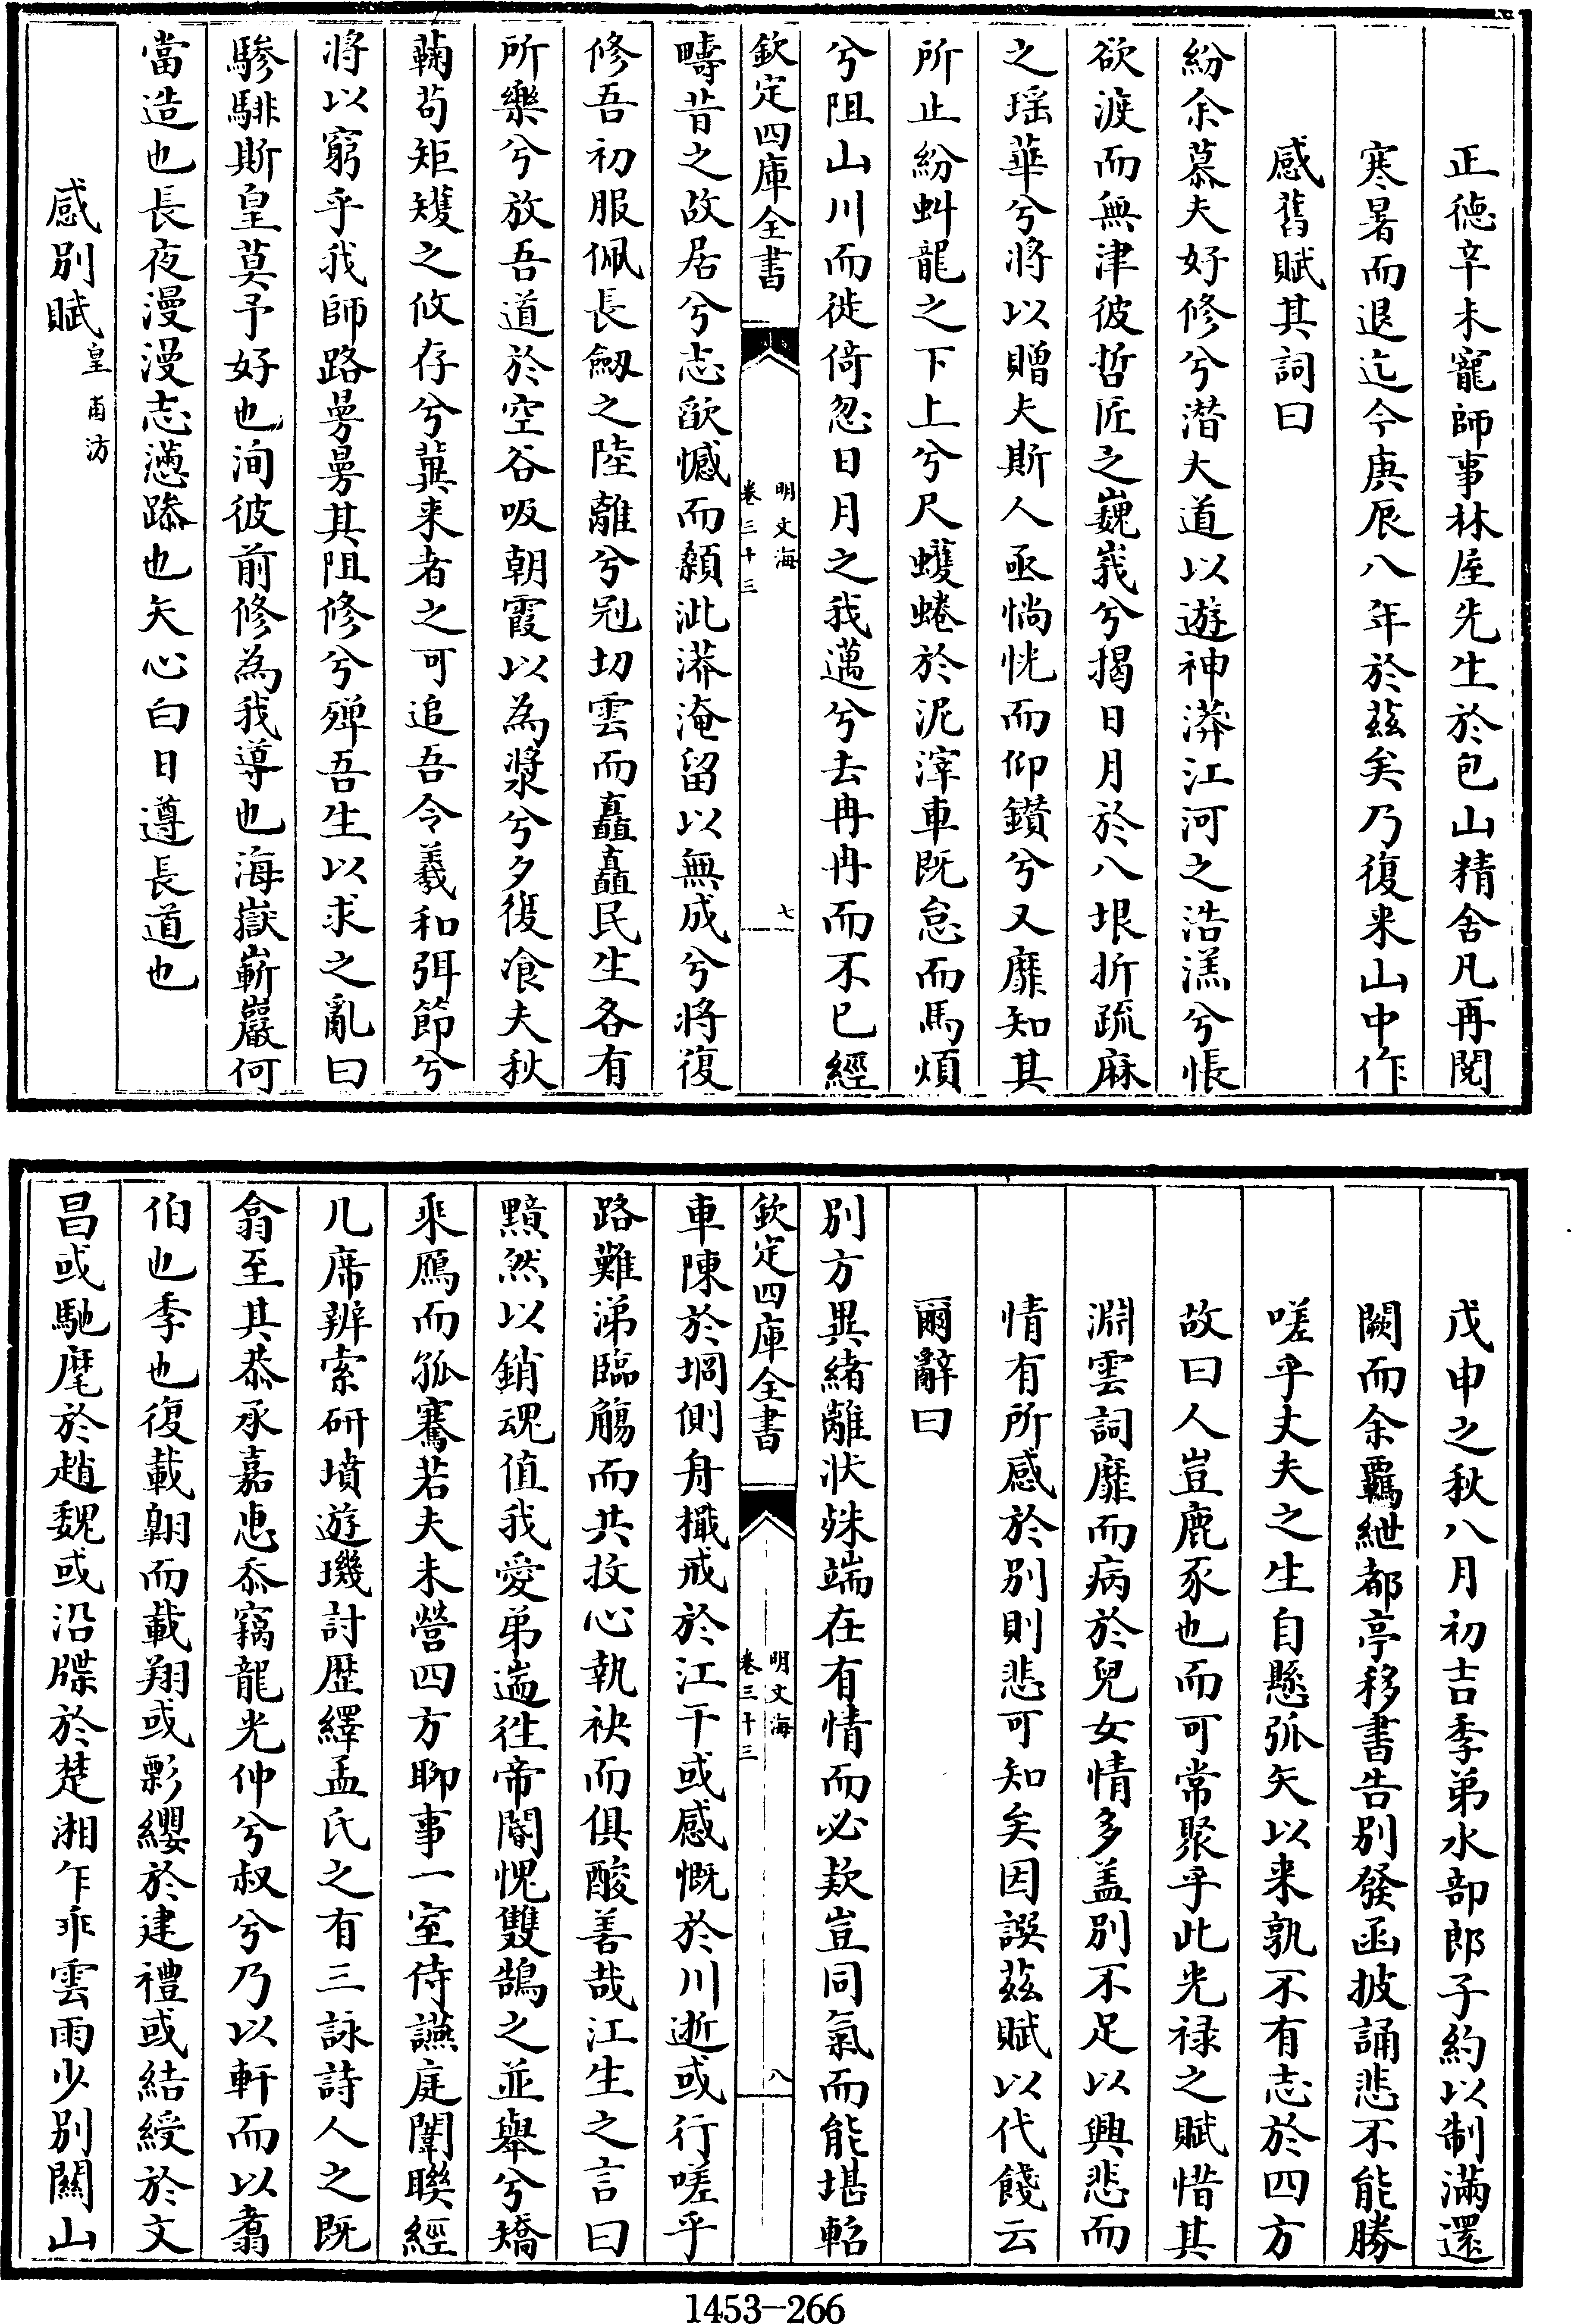 正徳辛未寵師事林屋先生於包山精舍凡再閱
寒暑而退迄今庚辰八年於兹矣乃復来山中作
感舊賦其詞曰
紛余慕夫好修兮潛大道以遊神漭江河之浩溔兮悵
欲渡而無津彼哲匠之巍峩兮揭日月於八垠折疏麻
之瑶華兮將以贈夫斯人亟惝恍而仰鑽兮又靡知其
所止紛虯龍之下上兮尺蠖蜷於泥滓車既怠而馬煩
兮阻山川而徙倚忽日月之我邁兮去冉冉而不已經
欽定四庫全書
明文海
卷三十三
七
疇昔之故居兮志欿憾而顙泚漭淹留以無成兮將復
修吾初服佩長劒之陸離兮冠切雲而矗矗民生各有
所樂兮放吾道於空谷吸朝霞以為漿兮夕復飡夫秋
菊苟矩矱之攸存兮冀来者之可追吾令羲和弭節兮
將以窮乎我師路曼曼其阻修兮殫吾生以求之亂曰
驂騑斯皇莫予好也洵彼前修為我導也海嶽嶄巖何
當造也長夜漫漫志懣踸也矢心白日遵長道也
感别賦皇甫汸
戊申之秋八月初吉季弟水部郎子約以制滿還
闕而余覊紲都亭移書告别發函披誦悲不能勝
嗟乎丈夫之生自懸弧矢以来孰不有志於四方
故曰人豈鹿豕也而可常聚乎此光禄之賦惜其
淵雲詞靡而病於兒女情多盖别不足以興悲而
情有所感於别則悲可知矣因譔兹賦以代餞云
爾辭曰
别方異緒離状殊端在有情而必歎豈同氣而能堪軺
欽定四庫全書
明文海
卷三十三
八
車陳於坰側舟檥戒於江干或感慨於川逝或行嗟乎
路難涕臨觴而共抆心執袂而俱酸善哉江生之言曰
黯然以銷魂值我愛弟遄徃帝閽愧雙鵠之並舉兮矯
乘鴈而孤騫若夫未營四方聊事一室侍讌庭闈聯經
几席辨索研墳遊璣討歴繹孟氏之有三詠詩人之既
翕至其恭承嘉惠忝竊龍光仲兮叔兮乃以軒而以翥
伯也季也復載翺而載翔或影纓於建禮或結綬於文
昌或馳麾於趙魏或沿牒於楚湘乍乖雲雨少别關山
1453-266